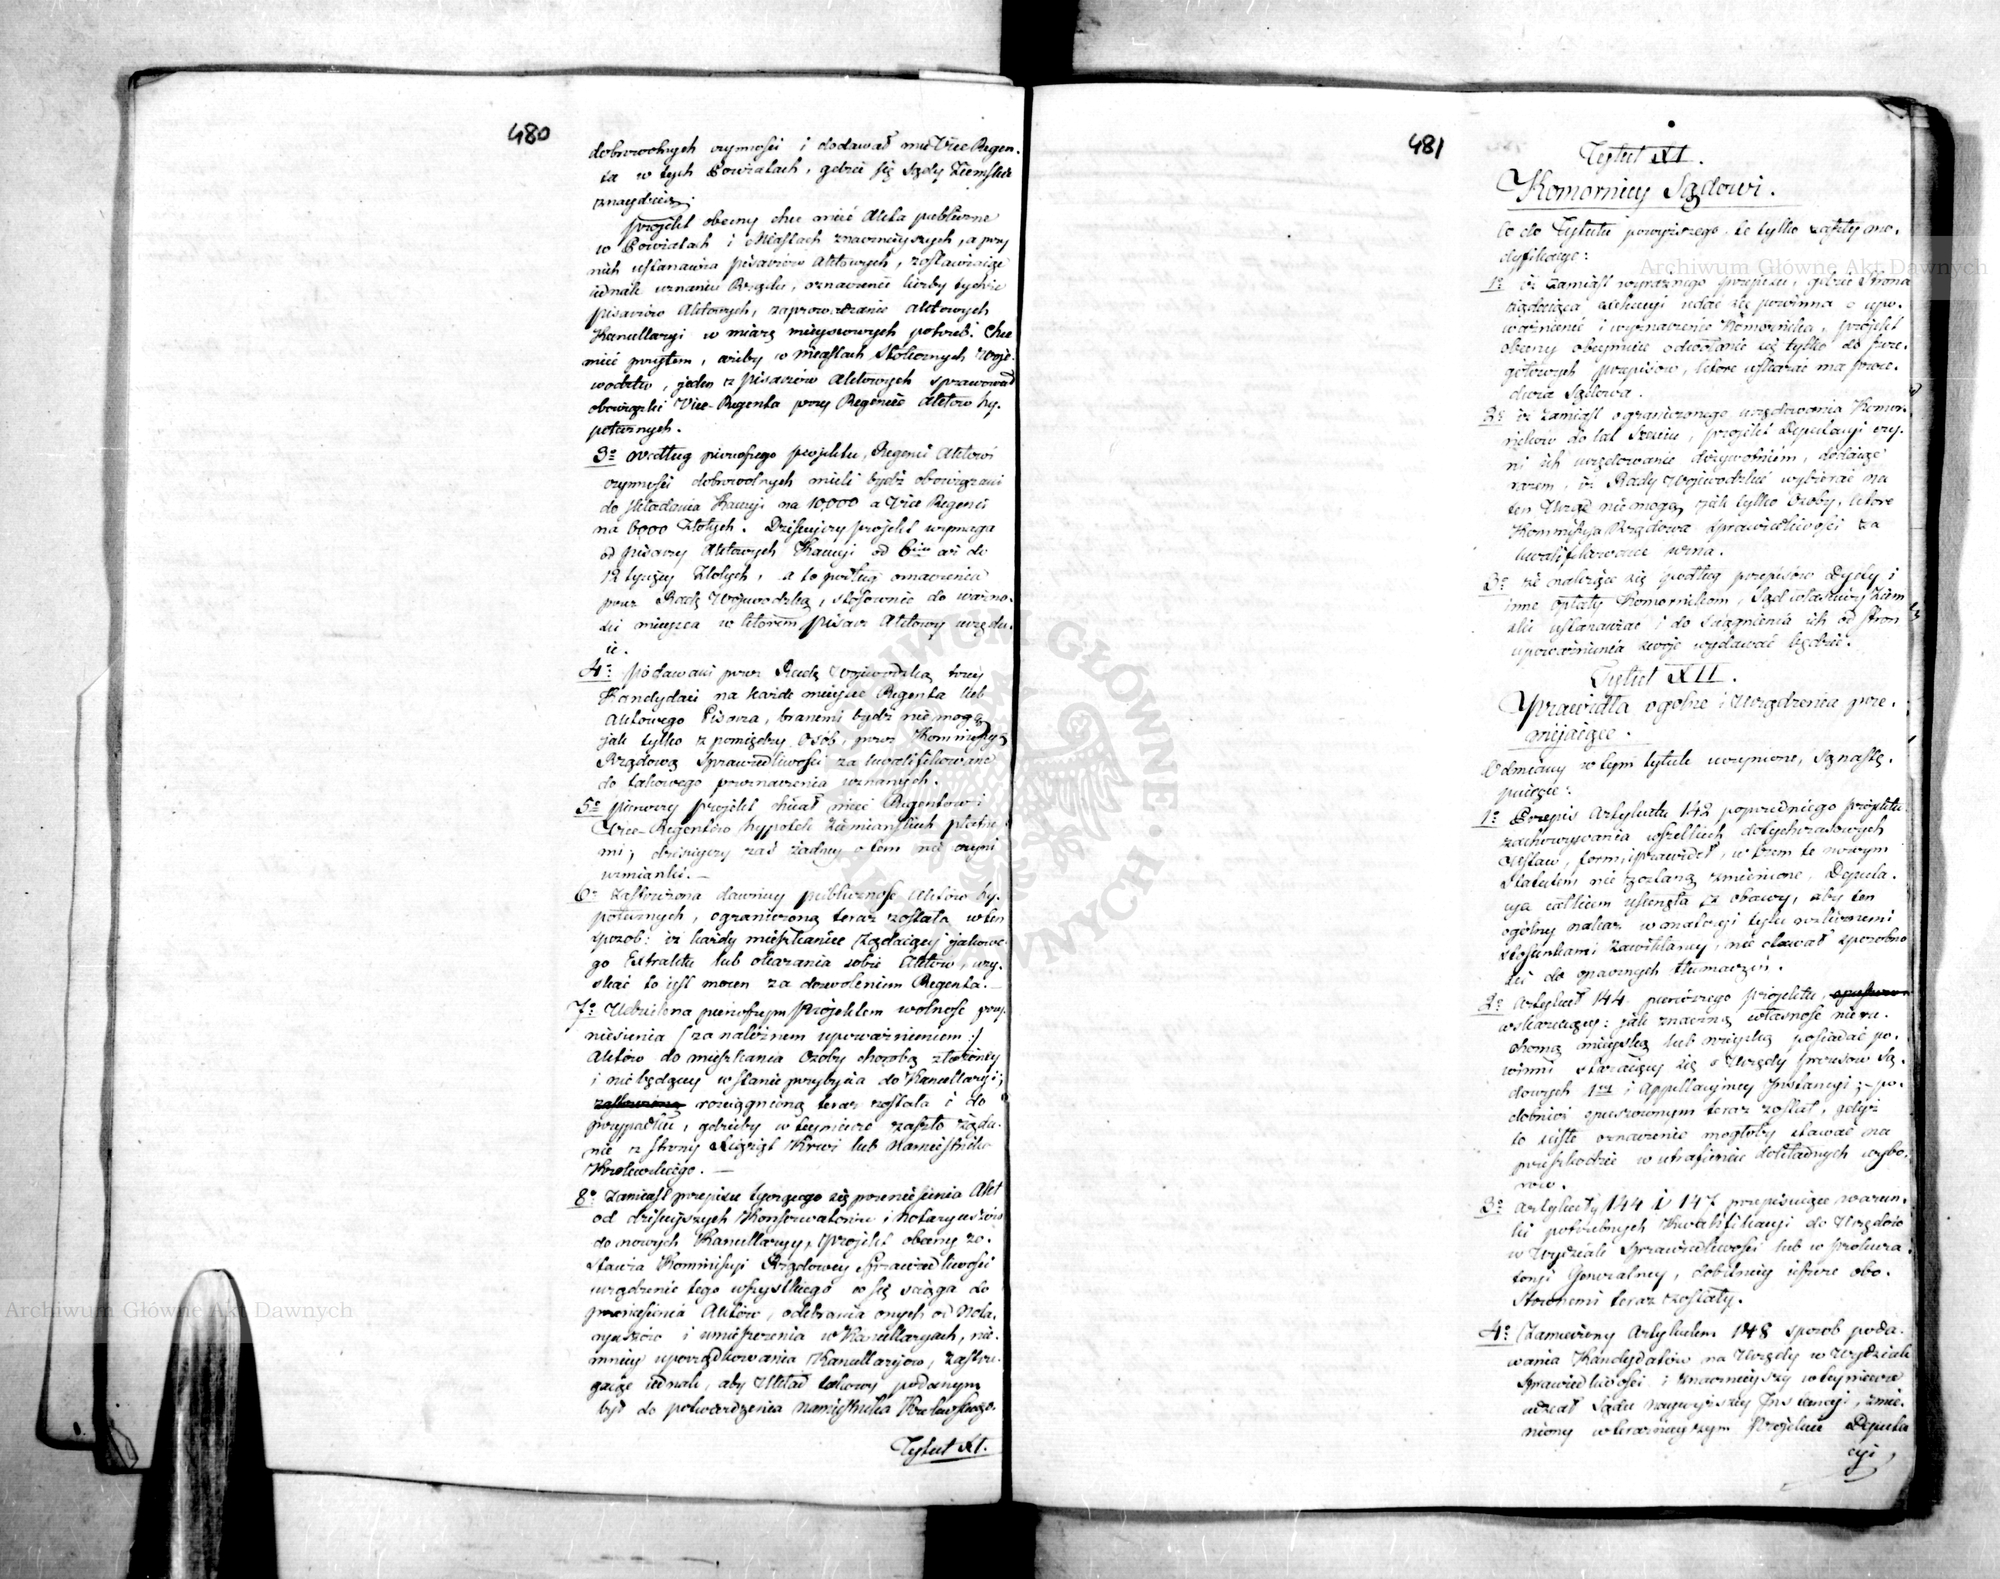 480
dobrowolnych czynności i dodawał mu Vice Regen-
ta w tych Powiatach, gdzie się Sądy Ziemskie
znaydują.
Projekt obecny chce mieć Akta publiczne
w Powiatach i Miastach znacznieyszych, a przy
nich ustanawia Pisarzów Aktowych, zostawiając
jednak uznaniu Rządu, oznaczenie liczby tychże
Pisarzów Aktowych, zaprowadzanie Aktowych
Kancellaryi w miarę mieyscowych potrzeb. Chce
mieć przytem, ażeby w Miastach Stołecznych Woje-
wodztw, jeden z Pisarzów Aktowych sprawował
obowiązki Vice-Regenta przy Regencie Aktow hy-
potecznych.
3º Według pierwszego projektu, Regenci Aktowi
czynności dobrowolnych mieli bydź obowiązani
do składania Kaucyi na 10,000 a Vice Regenci
na 6000 Złotych. Dzisieyszy projekt wymaga
od Pisarzy Aktowych Kaucyi od 6ciu aż do
12 tysięcy Złotych, a to podług oznaczenia
przez Radę Wojewodzką, stosownie do ważno-
ści mieysca w którem Pisarz Aktowy urzędu-
ie.
4º Podawani przez Radę Wojewodzką trzey
Kandydaci na każde mieysce Regenta lub
Aktowego Pisarza, branemi bydź nie mogą
jak tylko z pomiędzy Osób, przez Kommissyą
Rządową Sprawiedliwości za kwalifikowane
do takowego przeznaczenia uznanych.
5º Pierwszy projekt chciał mieć Regentow i
Vice-Regentów hypotek Ziemiańskich płatne-
mi; dzisieyszy zaś żadney o tem nie czyni
wzmianki.
6º Zastrzeżona dawniey publiczność Aktów hy-
potecznych, ograniczoną teraz została w ten
sposób: iż każdy mieszkaniec żądaiący jakowe-
go Extraktu lub okazania sobie Aktów, uzy-
skać to jest mocen za dozwoleniem Regenta.
7º Udzielona pierwszym projektem wolność prze-
niesienia (: za należnem upoważnieniem :)
Aktów do mieszkania Osoby chorobą złożoney
i nie będącey w stanie przybycia do Kancellaryi;
rozciągnioną teraz została i do
przypadku, gdzieby w teymierze zaszło żąda-
nie z strony Xiążąt Krwi lub Namiestnika
Królewskiego.
8º Zamiast przepisu tyczącego się przeniesienia Akt
od dzisieyszych Konserwatorów i Notaryuszów
do nowych Kancellaryy, projekt obecny zo-
stawia Kommissyi Rządowey Sprawiedliwości
urządzenie tego wszystkiego co się ściąga do
przeniesienia Aktów, odebrania onych od Nota-
ryuszów i umieszczenia w Kancellaryach, nie-
mniey uporządkowania Kancellaryów, zastrze-
gaiąc jednak, aby Układ takowy podanym
był do potwierdzenia Namiestnika Królewskiego.
Tytuł XI.
481
Tytuł XI.
Komornicy Sądowi.
Co do Tytułu powyższego, te tylko zaszły mo-
dyfikacye:
1º iż zamiast wyraźnego przepisu, gdzie Strona
żądaiąca exekucyi udać się powinna o upo-
ważnienie i wyznaczenie Komornika, projekt
obecny obeymuie odwołanie się tylko do szcze-
gółowych przepisów, które wskazać ma proce-
dura Sądowa.
2º iż zamiast ograniczonego urzędowania Komor-
ników do lat Sześciu, projekt Deputacyi czy-
ni ich urzędowanie dożywotniem, dodaiąc
razem, iż Rady Wojewodzkie wybierać na
ten Urząd nie mogą jak tylko Osoby, które
Kommissya Rządowa Sprawiedliwości za
kwalifikowane uzna.
3º że należące się podług przepisów Dyety i
inne opłaty Komornikom, Sąd właściwy Ziem-
ski ustanawiać i do ściągnienia ich od stron
upoważnienia swoje wydawać będzie.
Tytuł XII.
Prawidła ogólne i Urządzenia prze-
mijaiące.
Odmiany w tym tytule uczynione, są nastę-
puiące:
1º Przepis Artykułu 142 poprzedniego projektu
zachowywania wszelkich dotychczasowych
Ustaw, form i prawideł, w czem te nowym
Statutem nie zostaną zmienione, Deputa-
cya całkiem usunęła z obawy, aby ten
ogólny nakaz w materyi tylu rozlicznemi
stosunkami zawikłaney, nie dawał sposobno-
ści do opacznych tłumaczeń.
2º Artykuł 144 pierwszego projektu,
wskazuiący: jak znaczną własność nieru-
chomą mieyską lub wieyską posiadać po-
winni staraiący się o Urzędy Prezesow Są-
dowych 1szey i Appellacyiney Instancyi; - po-
dobnież opuszczonym teraz został, gdyż
to ściśle oznaczenie mogłoby stawać na
przeszkodzie w utrafieniu dokładnych wybo-
rów.
3º Artykuły 144 i 147 przepisuiące warun-
ki potrzebnych Kwalifikacyi do Urzędów
w Wydziale Sprawiedliwości lub w Prokura-
toryi Generalney, dobitniey jeszcze obo-
strzonemi teraz zostały.
4º Zamierzony Artykułem 148 sposob poda-
wania Kandydatów na Urzędy w Wydziale
Sprawiedliwości i znacznieyszy w teymierze
udział Sądu naywyższey Instancyi, zmie-
niony w teraznieyszym Projekcie Deputa
cyi
Archiwum Główne Akt Dawnych
Archiwum Główne Akt Dawnych